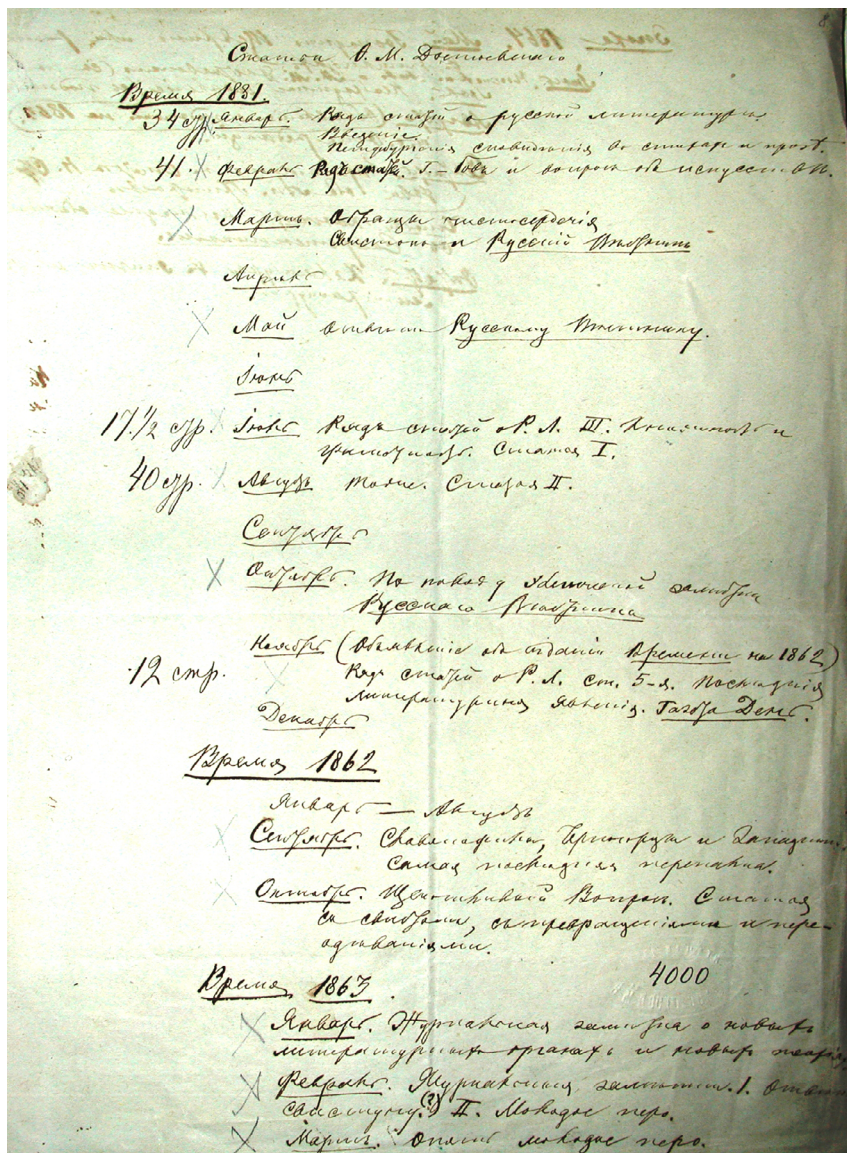 8
Статьи Ѳ. М. Достоевскаго
Время 1881.
34 стр. Январь. Рядъ статей о русской литературѣ.
Введеніе.
Петербургскія сновидѣнія въ стихахъ и прозѣ.
41. Февраль Рядъ статей. Г. –бовъ и вопросъ объ искусствѣ.
Мартъ. Образцы чистосердечія
Свистокъ и Русскій Вѣстникъ
Апрѣль
Май Отвѣтъ Русскому Вѣстнику.
Іюнь
17.1/2 стр. Іюль Рядъ статей о Р. Л. III. Книжность и
грамотность. Статья I.
40 стр. Августъ тоже. Статья II.
Сентябрь
Октябрь. По поводу элегической замѣтки
Русскаго Вѣстника
Ноябрь (Объявленіе объ изданіи Времени на 1862)
12 стр. Рядъ статей о Р. Л. ст. 5-я. Послѣднія
литературныя явленія. Газета День.
Декабрь
Время 1862
Январь — Августъ
Сентябрь. Славянофилы, Черногорцы и Западники.
Самая послѣдняя перепалка.
Октябрь. Щекотливый Вопросъ. Статья
со свистомъ, съ превращеніями и пере-
одѣваніями.
Время 1863. 4000
Январь. Журнальная замѣтка о новыхъ
литературныхъ органахъ и новыхъ теоріяхъ
Февраль. Журнальныя замѣтки. I. Отвѣтъ
Свистуну. (?) II. Молодое перо.
Мартъ. Опять молодое перо.